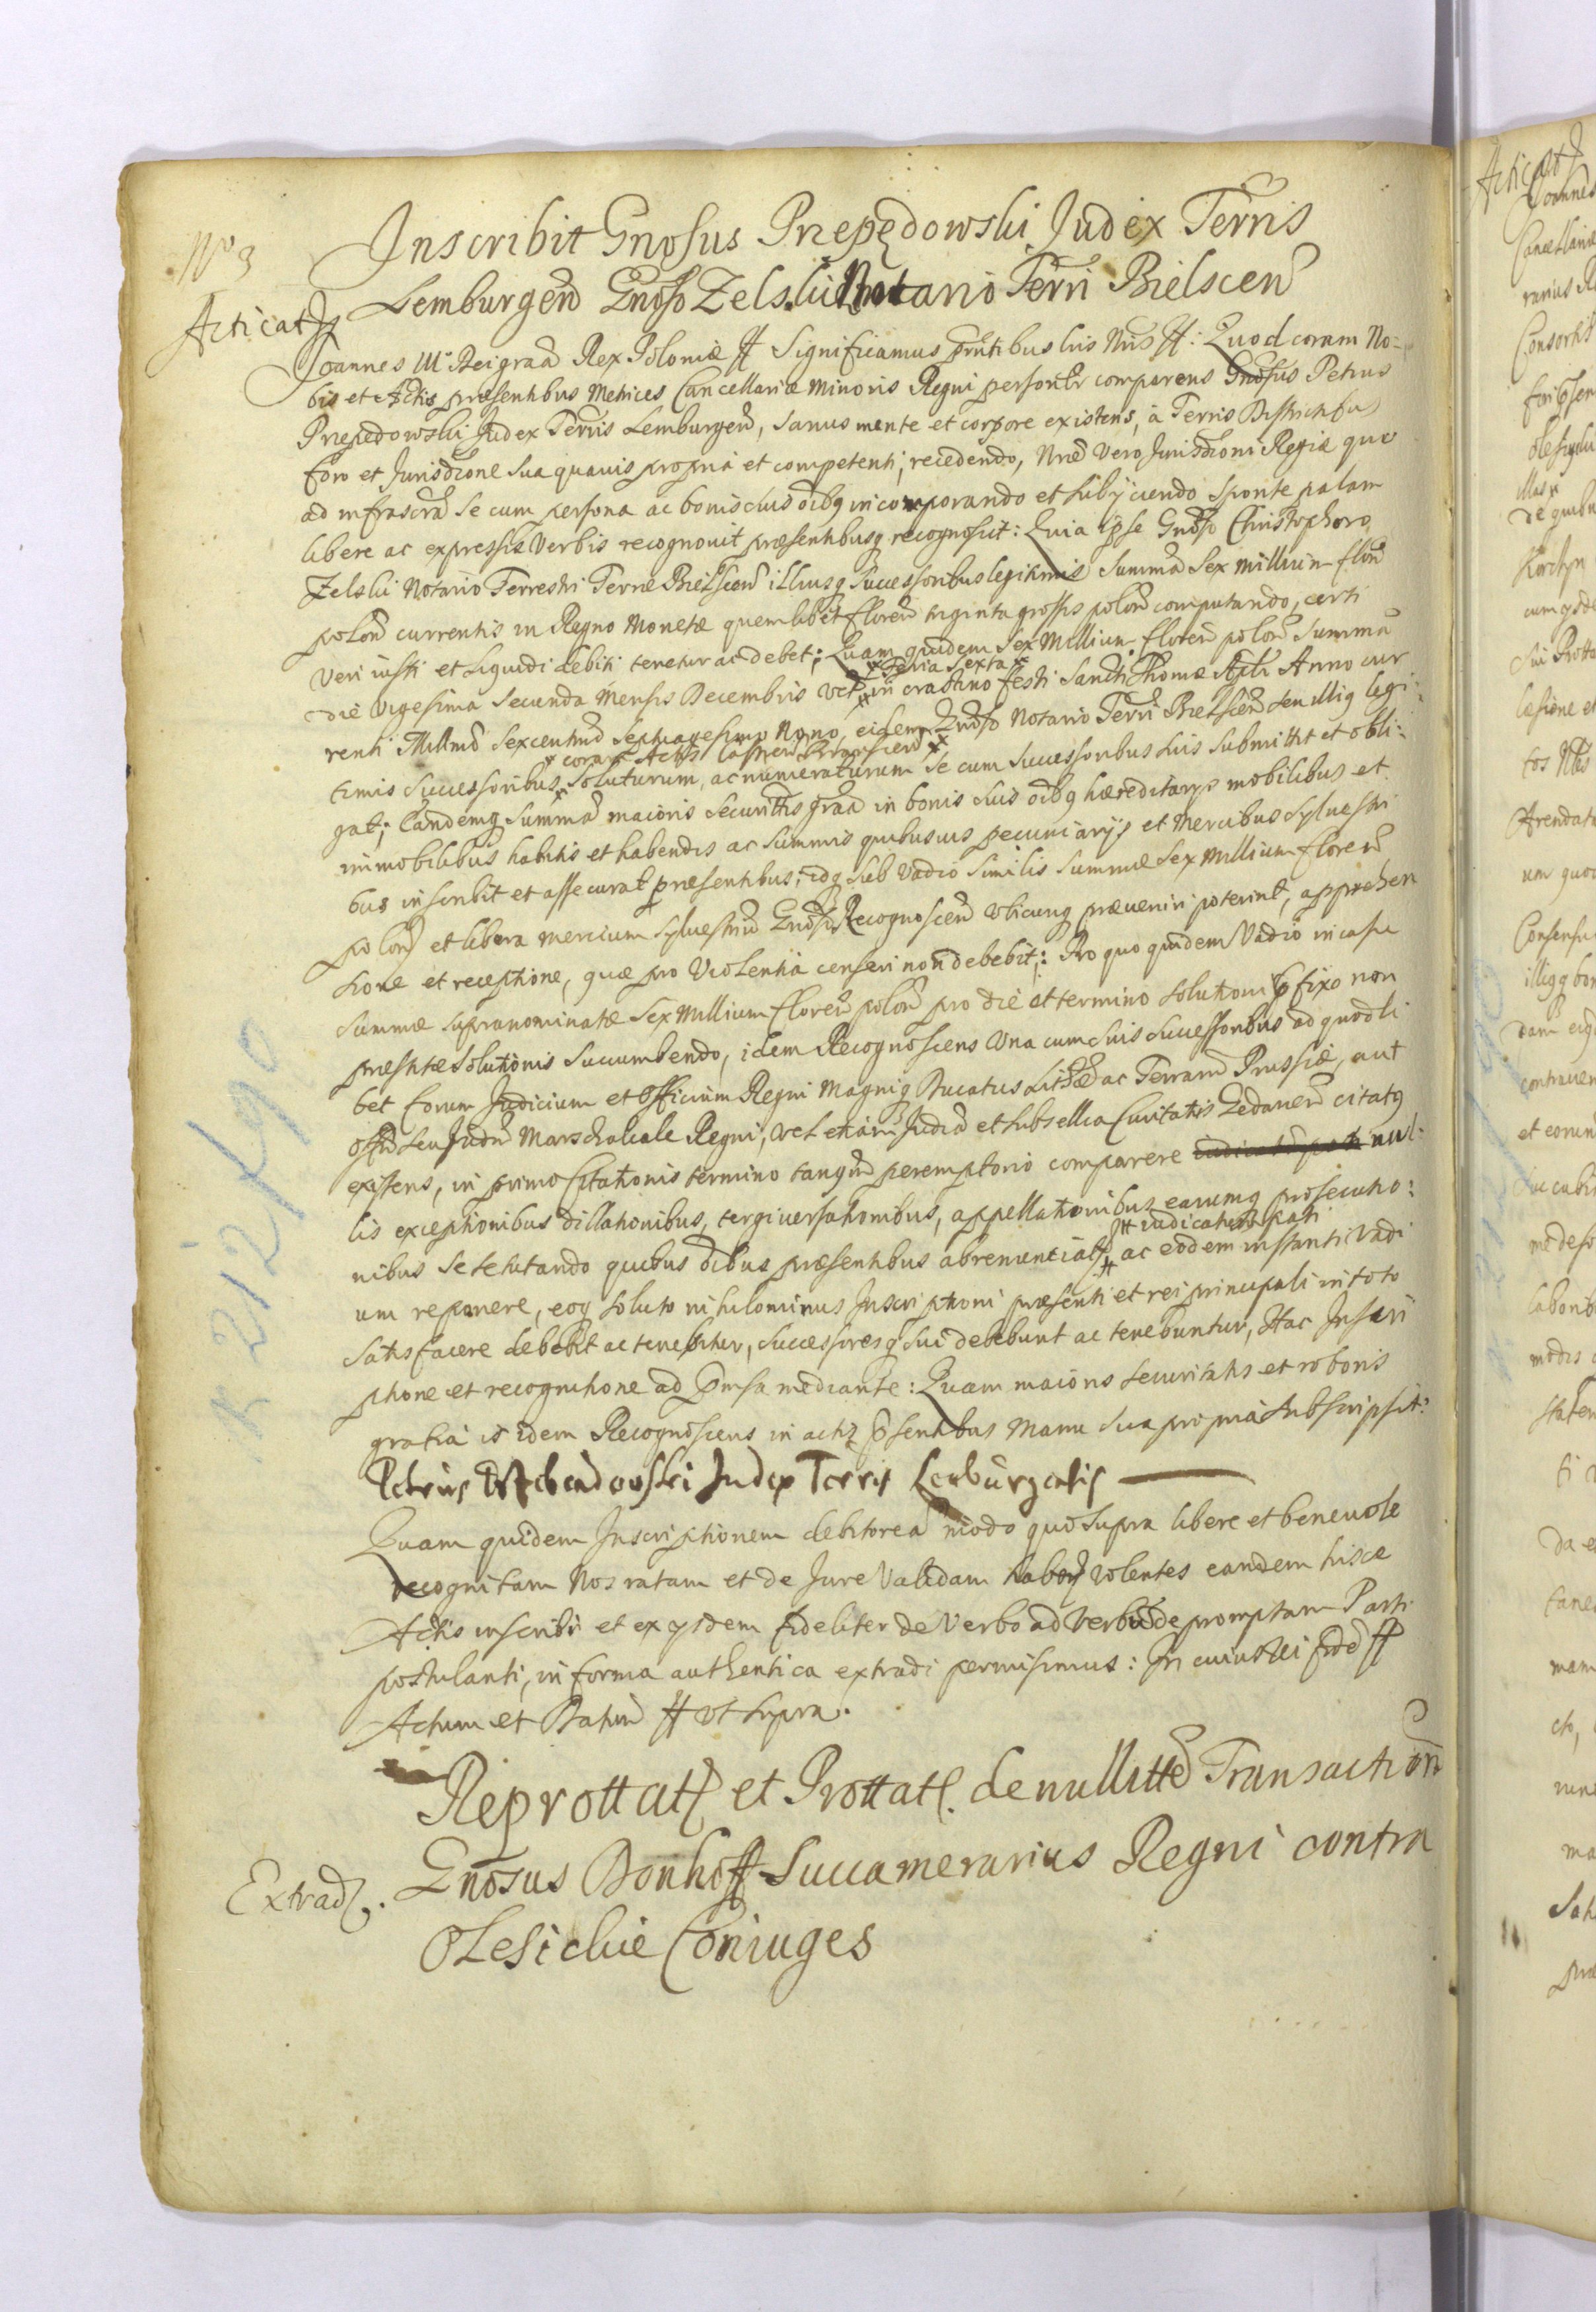 No 3
Inscribit Gnosus Przepędowski Judex Terris
Articat Lemburgen Gnoso Zelski Notario Terri Bielscen
Joannes III Dei graa Rex Poloniæ ff Significamus pntibus lris Nris ff: Quod coram No-
bis et Actis præsentibus Metrices Cancellariæ Minoris Regni personlr comparens Gnosus Petrus
Przepędowski Judex Terris Lemburgen, sanus mente et corpore existens, à Terris Districtibus
foro et Jurisdione sua quavis propria et competenti, recedendo, Nræ vero Jurisdioni Regiæ quo
ad infrascra se cum persona ac bonis suis oibq incorporando et subijciendo sponte palam
libere ac expressis Verbis recognovit præsentibusq recognoscit: Quia ipse Gnoso Christophoro
Zelski Notario Terrestri Terræ Bielscen illiusq successoribus legitimis summa sex millium flor
polon currentis in Regno Monetæ quemlibet floren triginta grossis polon computando, certi
veri iusti et liquidi debiti tenetur ac debet; Quam quidem sex Millium floren polon summa
x Feria sexta x
die vigesima secunda Mensis Decembris vel in crastino festi Sancti Thomæ Apli Anno cur
renti Millmo sexcentmo septuagesimo Nono, eidem Gnoso Notario Terri Bielscen seu illiq legi:
x coram Actis Castren Branscen x
timis successoribus soluturum, ac numeraturum se cum successoribus suis submittit et obli:
gat; Eandemq summa maioris securittis graa in bonis suis oibq hæreditarys mobilibus et
immobilibus habitis et habendis ac summis quibusvis pecuniarijs et Mercibus sylvestri
bus inscribit et assecurat præsentibus; idq sub vadio similis summæ sex millium floren
polon et libera mercium sylvestriu Gnosi Recognoscen ubicunq præveniri poterint, apprehen
sione et receptione, quæ pro violentia censeri non debebit; Pro quo quidem Vadio in casu
summæ supranominatæ sex Millium floren polon pro die et termino solutioni pfixo non
præstitæ solutionis succumbendo, idem Recognoscens una cum suis successoribus ad quodli
bet forum Judicium et Officium Regni Magniq Ducatus Lithæ ac Terram Prussiæ, aut
offm seu Judm Marschalcale Regni, vel etiam Judia et subsellia Civitatis Gedanen citatq
existens, in primo Citationis termino tanqm peremptorio comparere nul-
lis exceptionibus dillationibus, tergiversationibus, appellationibus earumq prosecutio:
ff iudicatum pati
nibus se se tutando quibus oibus præsentibus abrenunciat, ac eodem instanti vadi
um reponere, eoq soluto nihilominus Inscriptioni præsenti et rei principali in toto
satisfacere debebit ac tenebitur, successoresq sui debebunt ac tenebuntur, Hac Inscri
ptione et recognitione ad pmsa mediante: Quam maioris securitatis et roboris
gratia is idem Recognoscens in actis psentibus Manu sua propria subscripsit:
Petrus Przebendowski Judex Terris Leoburgensis
Quam quidem Inscriptionem debitorea modo quo supra libere et benevole
recognitam Nos ratam et de Jure validam habere volentes eandem hisce
Actis inscribi et ex ysdem fideliter de Verbo ad verbu depromptam Parti
postulanti, in forma authentica extradi permisimus: In cuius rei fide ff
Actum et Datum ff ut supra.
Reprottat et Prottat. de nullitte Transaction
Extrad. Gnosus Donhoff Succamerarius Regni contra
Olesickie Coniuges